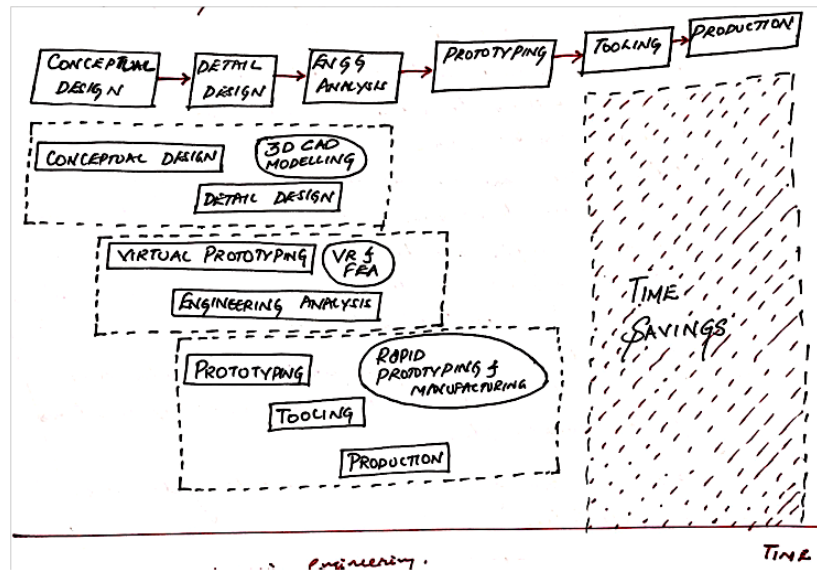 CONCEPTUAL
DESIGN
DETAIL
DESIGN
ENGG
ANALYSIS
PROTOTYPING
TOOLING
PRODUCTION
CONCEPTUAL DESIGN
3D CAD
MODELLING
DETAIL DESIGN
VIRTUAL PROTOTYPING
VR &
FEA
ENGINEERING ANALYSIS
PROTOTYPING
RAPID
PROTOTYPING &
MANUFACTURING
TOOLING
PRODUCTION
TIME
SAVINGS
TIME
engineering.